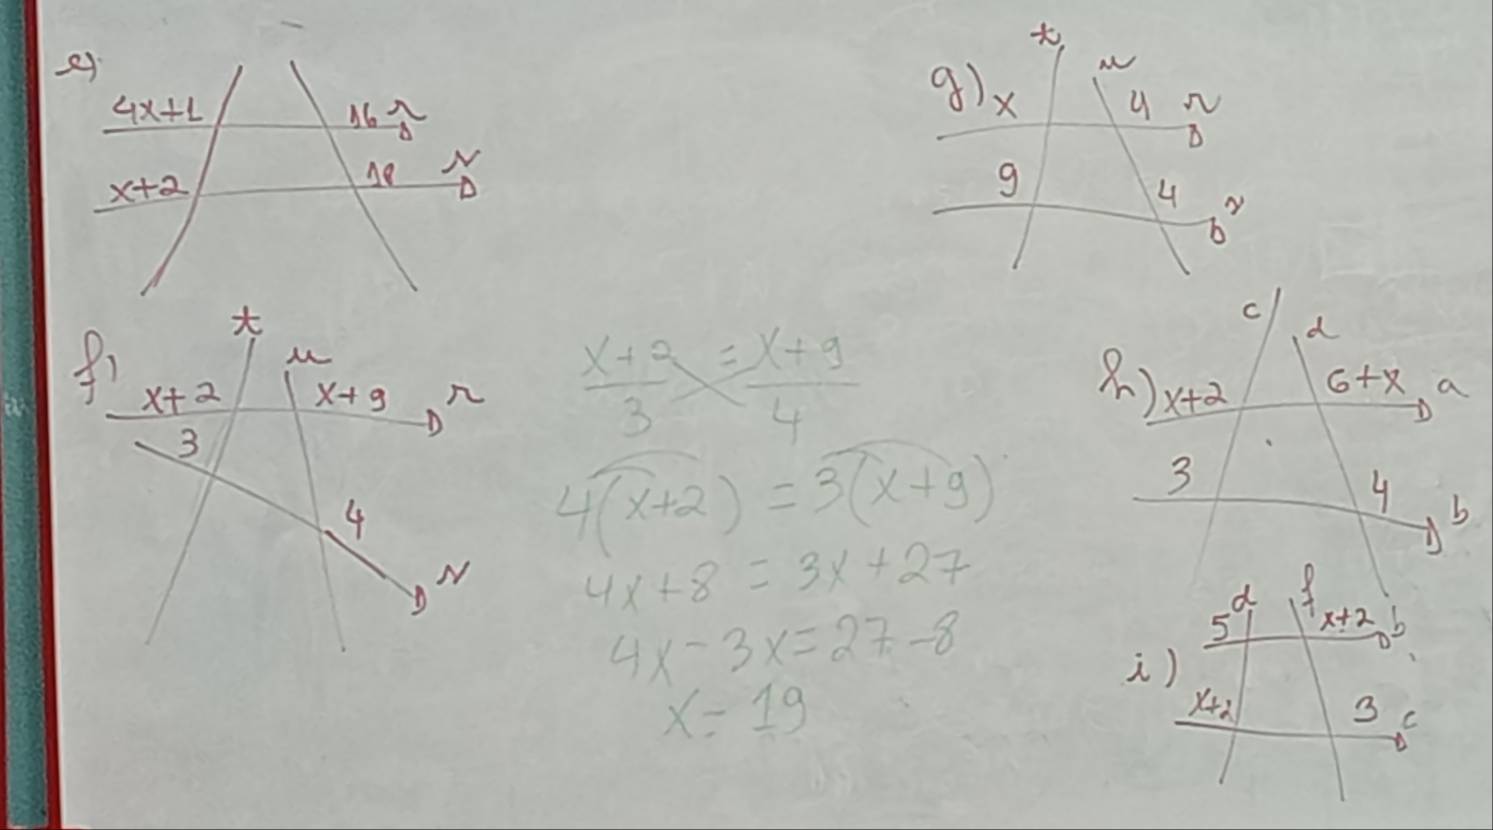 e)
4x+1 16 r
x+2 18 s
f)
t u
x+2 x+9 r
3
4 s
x+2 = x+9
3 4
4(x+2) = 3(x+9)
4x+8 = 3x+27
4x-3x=27-8
x=19
g)
t u
x 4 r
9 4 s
h)
c d
x+2 6+x a
3 4 b
i)
d f
5 x+2 b
x+2 3 c